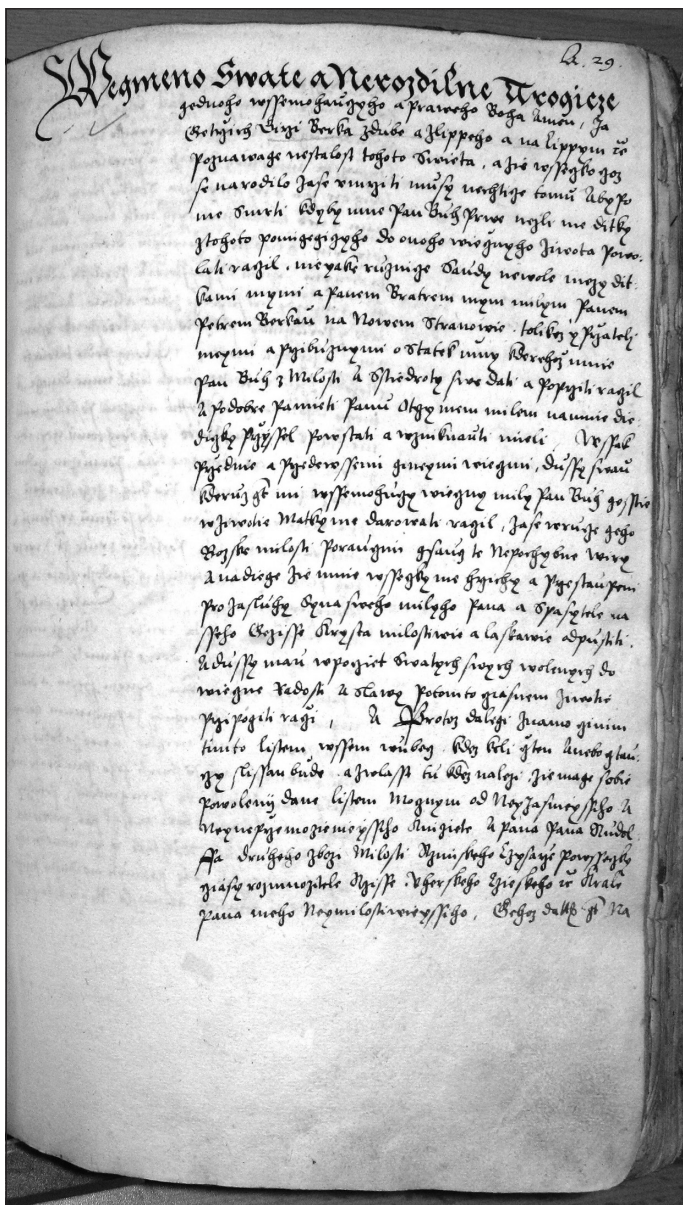 A. 29.
Wegmeno Swate a Nerozdilne Trogicze
gednoho wssemohauczyho a praweho Boha Amen, Ja
Girzi Berka z Dube a z Lippeho a na Lippym
Poznawage nestalost tohoto Swieta, a zie wsseczko coz
se narodilo zase vmrziti musy nechtige tomu Aby po
me Smrti kdyby mne Pan Buh prwe nezli me ditky
z tohoto pomigegiczyho do onoho wiecznyho ziwota powo-
lati raczil, niegake ruznicze Saudy newole mezy dit-
kami mymi a Panem Bratrem mym milym Panem
Petrem Berkau na Nowem Stranowie, tolikez y Przately
meymi a Przibuznymi o Statek muy kderehoz mnie
Pan Buh z Milosti A Sstiedroty swe dati a poprziti raczil
A po dobre Pamieti Panu Otczy mem milem na mnie die-
diczky przyssel powstati a wzniknauti mieli, Wssak
przednie a przedewssemi gineymi wieczmi, dussy swau
kderuz mi wssemohuczy wieczny mily Pan Buh gesstie
w ziwotie Matky me darowati raczil, zase wrucze geho
Bozske milosti porauczim gsaucz te Nepochybne wiry
A nadiege zie mnie wsseczky me hrzichy a przestaupeni
pro zasluhy Syna sweho milyho Pana a Spasytele na-
sseho Gezisse Krysta milostiwie a laskawie odpustiti,
A dussy mau w poczet Swatych swych wolenych do
wieczne Radosti A Slawy po tomto czasnem ziwotie
przipogiti raczi, A Protoz dalegi znamo czinim
timto listem wssem wubecz kdez koli czten Anebo cztau-
czy slissan bude, a zwlasst tu kdez nalezi, zie mage sobie
powoleny dane listem Mocznym od Neyjasneyssiho A
Neyneprzemozieneyssiho Knizete, A Pana Pana Rudol-
ffa druheho z Bozi Milosti Rzimskeho Czysarze powsseczky
czasy rozmnozitele Rzisse, Vherskeho Czieskeho Krale
Pana meho Neymilostiwieyssiho, Gehoz datum Na